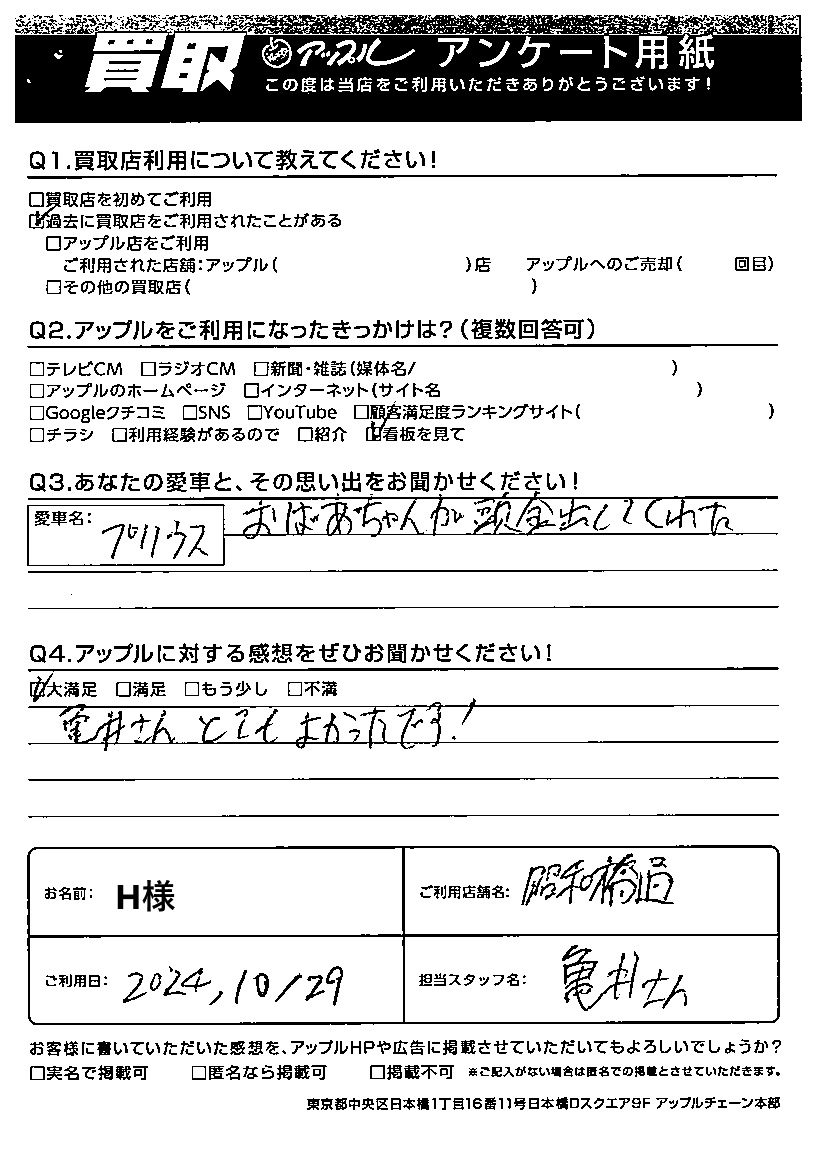 買取 アップル アンケート用紙
この度は当店をご利用いただきありがとうございます!
Q1.買取店利用について教えてください!
□買取店を初めてご利用
☑過去に買取店をご利用されたことがある
□アップル店をご利用
ご利用された店舗:アップル( )店 アップルへのご売却( 回目)
□その他の買取店( )
Q2.アップルをご利用になったきっかけは?(複数回答可)
□テレビCM □ラジオCM □新聞・雑誌(媒体名/ )
□アップルのホームページ □インターネット(サイト名 )
□Googleクチコミ □SNS □YouTube □顧客満足度ランキングサイト( )
□チラシ □利用経験があるので □紹介 ☑看板を見て
Q3.あなたの愛車と、その思い出をお聞かせください!
愛車名: プリウス おばあちゃんが頭金出してくれた
Q4.アップルに対する感想をぜひお聞かせください!
☑大満足 □満足 □もう少し □不満
亀井さん とても よかったです!
お名前: H様 ご利用店舗名: 昭和橋通
ご利用日: 2024,10/29 担当スタッフ名: 亀井さん
お客様に書いていただいた感想を、アップルHPや広告に掲載させていただいてもよろしいでしょうか?
□実名で掲載可 □匿名なら掲載可 □掲載不可 ※ご記入がない場合は匿名での掲載とさせていただきます。
東京都中央区日本橋1丁目16番11号日本橋Dスクエア9F アップルチェーン本部